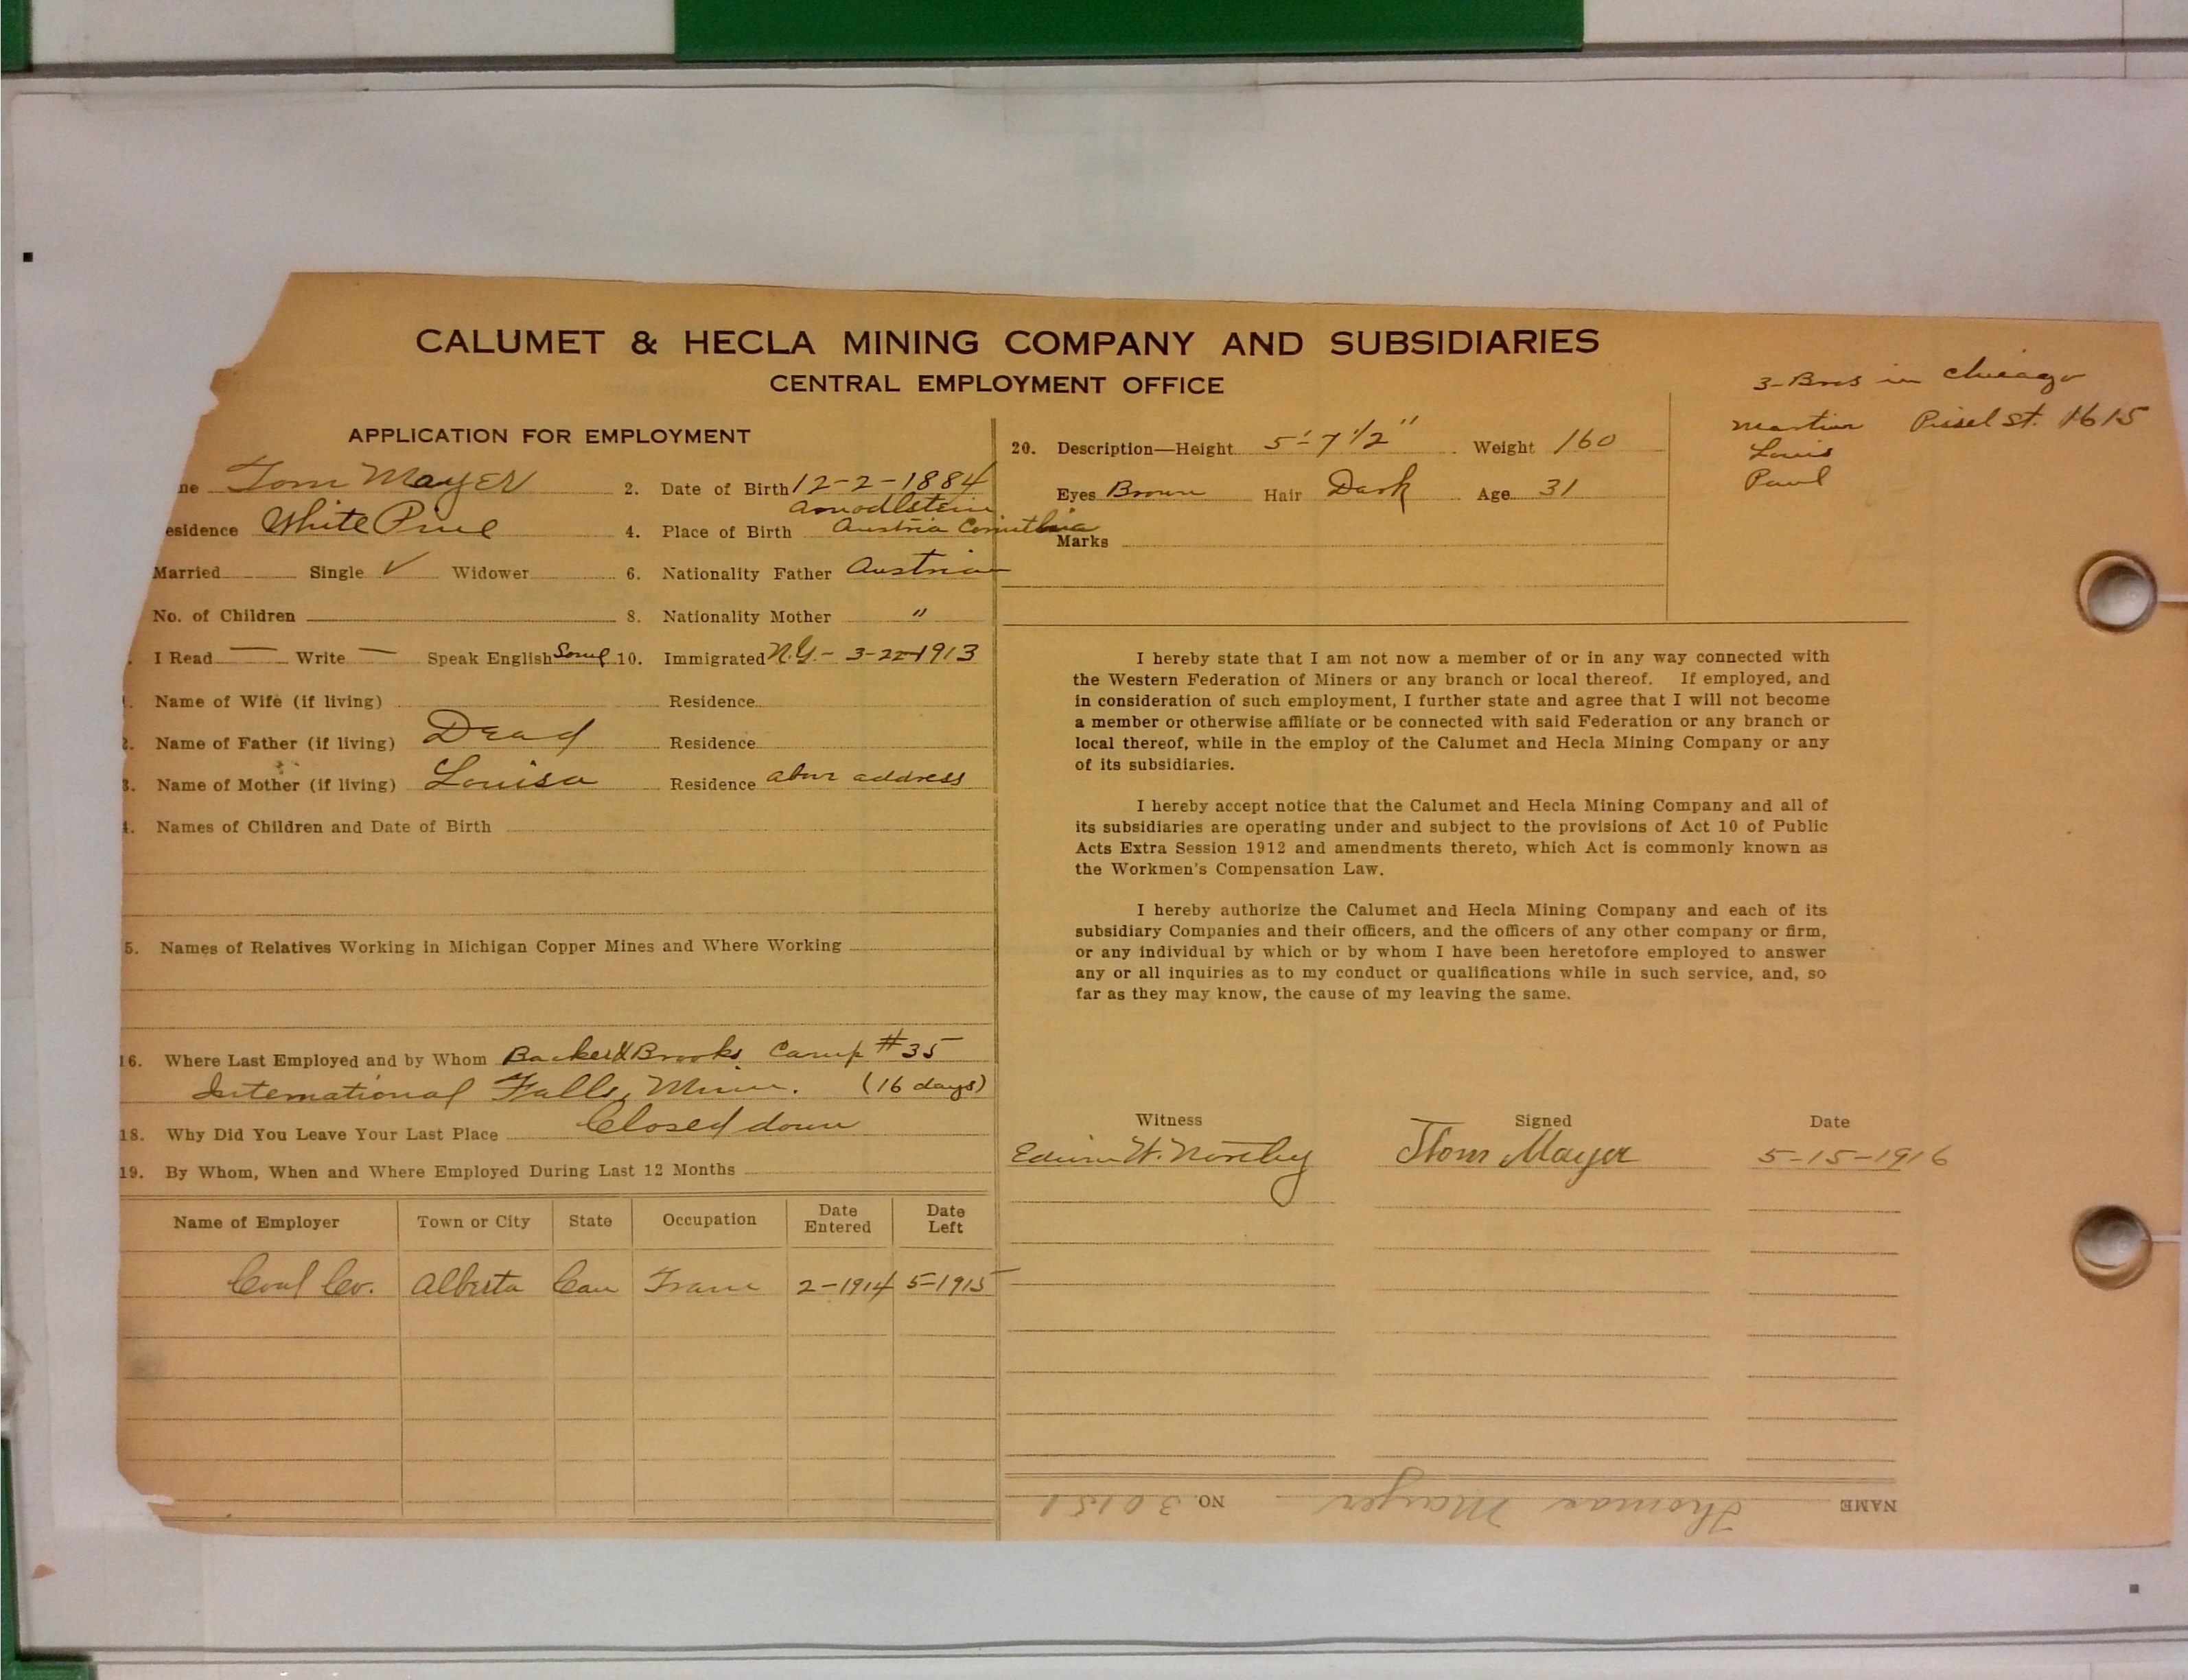 CALUMET & HECLA MINING COMPANY AND SUBSIDIARIES
CENTRAL EMPLOYMENT OFFICE
APPLICATION FOR EMPLOYMENT
ne Tom Mayer 2. Date of Birth 12-2-1884
esidence White Pine 4. Place of Birth Austria
Married Single ✓ Widower 6. Nationality Father Austrian
No. of Children 8. Nationality Mother "
I Read — Write — Speak English Some 10. Immigrated N.Y. - 3-22-1913
Name of Wife (if living) Residence
2. Name of Father (if living) Dead Residence
3. Name of Mother (if living) Louisa Residence above address
4. Names of Children and Date of Birth
5. Names of Relatives Working in Michigan Copper Mines and Where Working
16. Where Last Employed and by Whom Backus & Brooks Camp #35
International Falls, Minn. (16 days)
18. Why Did You Leave Your Last Place Closed down
19. By Whom, When and Where Employed During Last 12 Months
Name of Employer Town or City State Occupation Date Entered Date Left
Coal Co. Alberta Can Tram 2-1914 5-1915
20. Description—Height 5'-7 1/2" Weight 160
Eyes Brown Hair Dark Age 31
Marks
3-Bros in Chicago
Martin St. 1615
Louis
Paul
I hereby state that I am not now a member of or in any way connected with
the Western Federation of Miners or any branch or local thereof. If employed, and
in consideration of such employment, I further state and agree that I will not become
a member or otherwise affiliate or be connected with said Federation or any branch or
local thereof, while in the employ of the Calumet and Hecla Mining Company or any
of its subsidiaries.
I hereby accept notice that the Calumet and Hecla Mining Company and all of
its subsidiaries are operating under and subject to the provisions of Act 10 of Public
Acts Extra Session 1912 and amendments thereto, which Act is commonly known as
the Workmen's Compensation Law.
I hereby authorize the Calumet and Hecla Mining Company and each of its
subsidiary Companies and their officers, and the officers of any other company or firm,
or any individual by which or by whom I have been heretofore employed to answer
any or all inquiries as to my conduct or qualifications while in such service, and, so
far as they may know, the cause of my leaving the same.
Witness Signed Date
Edwin W. Thom Mayer 5-15-1916
NAME Thomas Mayer NO. 30151